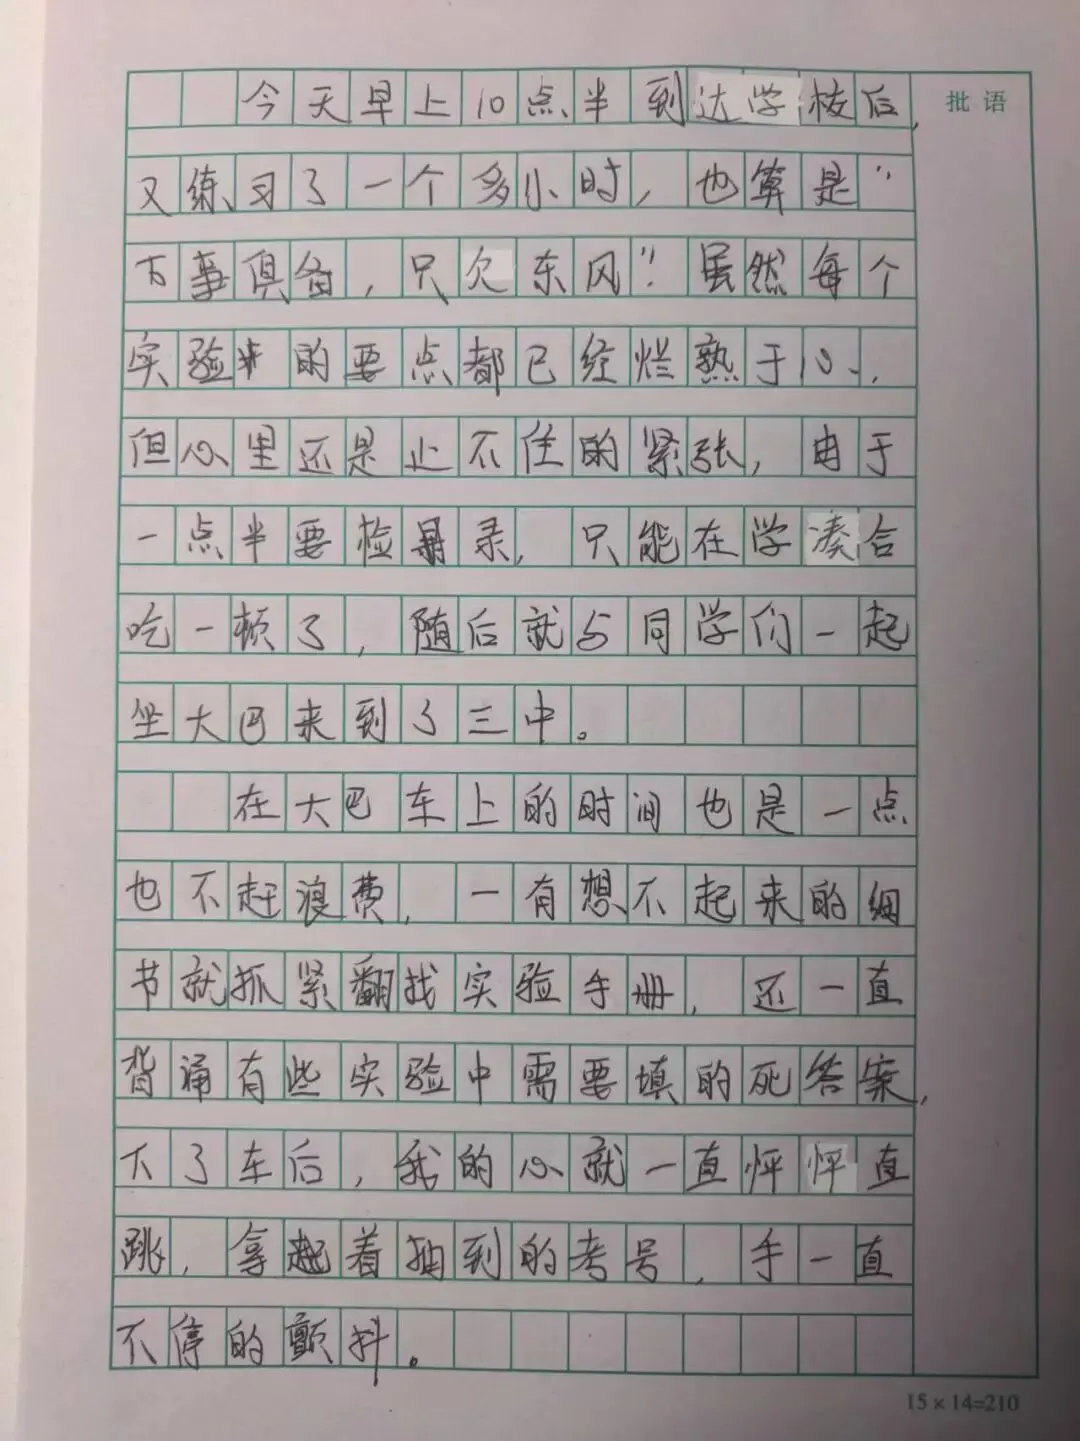 今天早上10点半到达学校后,
批语
又练习了一个多小时,也算是“
万事俱备,只欠东风”虽然每个
实验的要点都已经烂熟于心,
但心里还是止不住的紧张,由于
一点半要检录,只能在学凑合
吃一顿了,随后就与同学们一起
坐大巴来到了三中。
在大巴车上的时间也是一点
也不赶浪费,一有想不起来的细
节就抓紧翻找实验手册,还一直
背诵有些实验中需要填的死答案,
下了车后,我的心就一直怦怦直
跳,拿着抽到的考号,手一直
不停的颤抖。
15×14=210